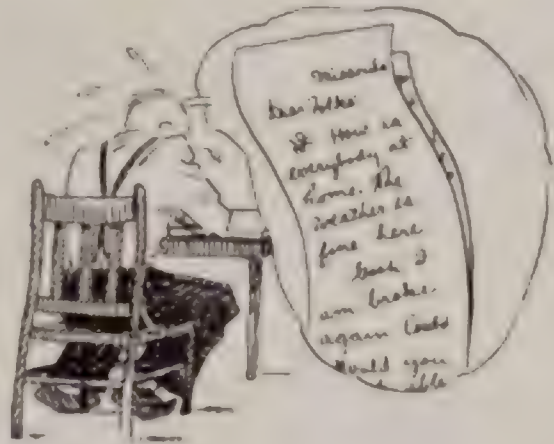 Missoula
Dear Folks
How is
everybody at
home. The
weather is
fine here
Gosh I
am broke
again
would you
able